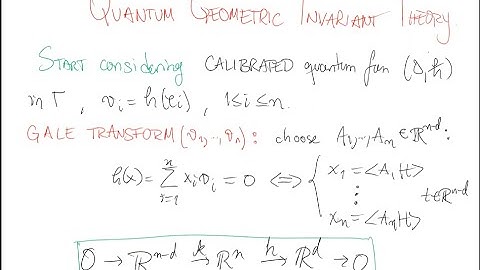 QUANTUM GEOMETRIC INVARIANT THEORY.
START considering CALIBRATED quantum fan (Δ, h)
in Γ, v_i = h(e_i), 1≤i≤n.
GALE TRANSFORM (v_1, ..., v_n): choose A_1, ..., A_n ∈ ℝ^{n-d}:
h(x) = Σ_{i=1}^{n} x_i v_i = 0 ⟺ { x_1 = <A_1, t>
⋮ t ∈ ℝ^{n-d}
x_n = <A_n, t>
0 → ℝ^{n-d} →^{k} ℝ^n →^{h} ℝ^d → 0